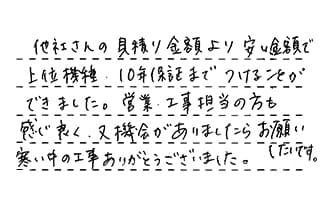 他社さんの見積り金額より安い金額で
上位機種・10年保証までつけることが
できました。営業・工事担当の方も
感じ良く、又機会がありましたらお願い
したいです。
寒い中の工事ありがとうございました。